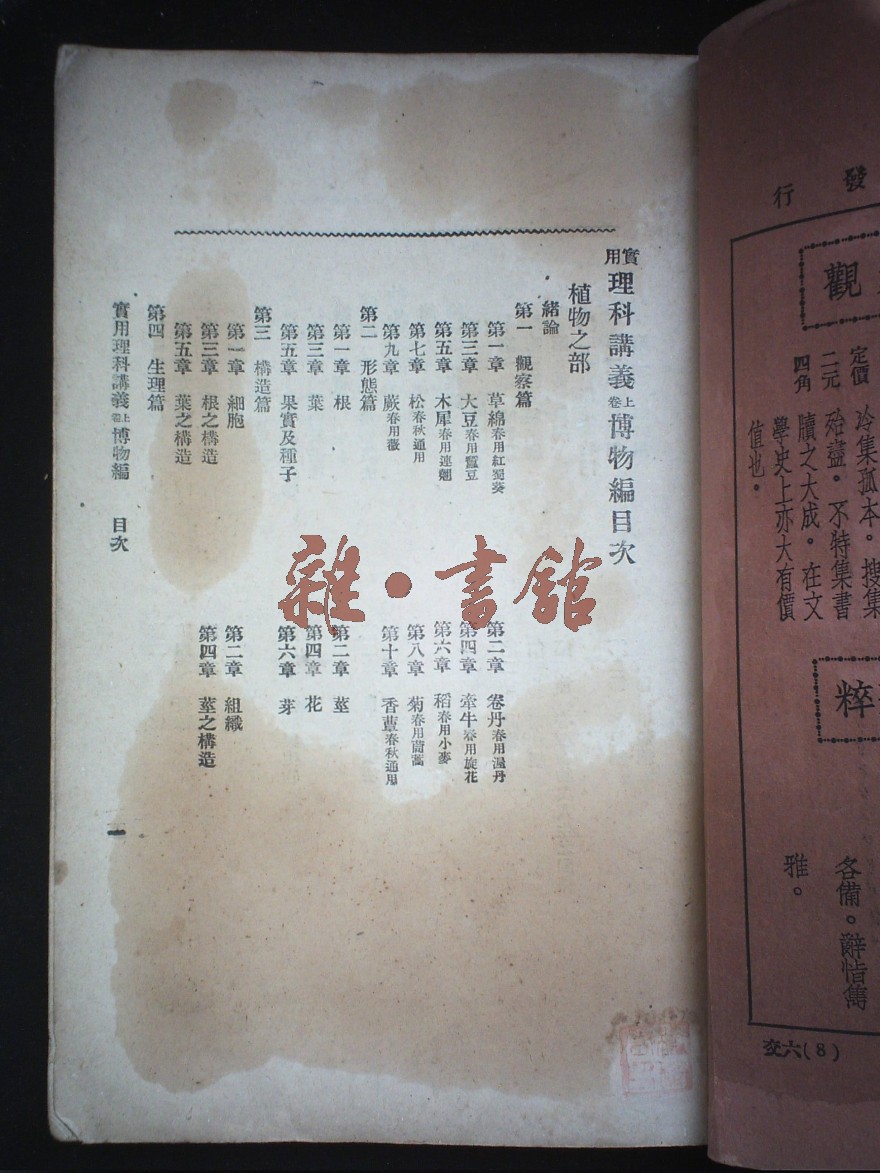 實用理科講義卷上博物編目次
植物之部
緒論
第一 觀察篇
第一章 草綿春用紅蜀葵 第二章 卷丹春用渥丹
第三章 大豆春用蠶豆 第四章 牽牛春用旋花
第五章 木犀春用連翹 第六章 稻春用小麥
第七章 松春秋通用 第八章 菊春用茼蒿
第九章 蕨春用薇 第十章 香蕈春秋通用
第二 形態篇
第一章 根 第二章 莖
第三章 葉 第四章 花
第五章 果實及種子 第六章 芽
第三 構造篇
第一章 細胞 第二章 組織
第三章 根之構造 第四章 莖之構造
第五章 葉之構造
第四 生理篇
實用理科講義卷上博物編 目次 一
雜·書館
發行
觀
定價
二元
四角
冷集孤本。搜集
殆盡。不特集書
牘之大成。在文
學史上亦大有價
值也。
粹
各備。辭恉雋
雅。
交六(8)